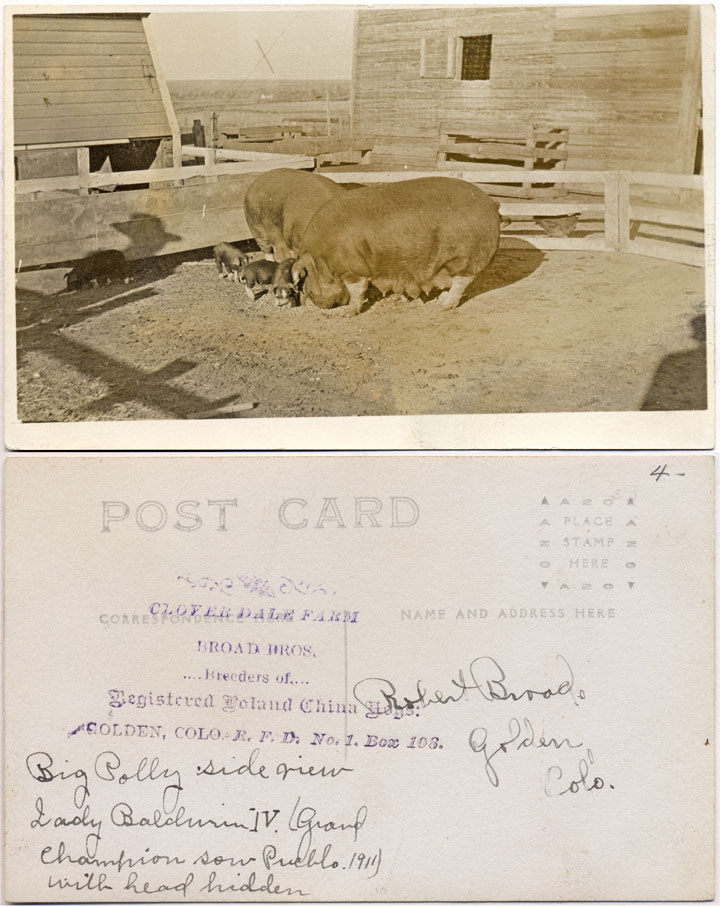 4-
POST CARD
AZO
PLACE
STAMP
HERE
AZO
CLOVER DALE FARM
CORRESPONDENCE HERE
NAME AND ADDRESS HERE
BROAD BROS.
....Breeders of....
Registered Poland China Hogs.
GOLDEN, COLO. R. F. D. No. 1. Box 103.
Robert Broad
Golden
Colo.
Big Polly side view
Lady Baldwin IV. (Grand
Champion sow Pueblo. 1911)
with head hidden